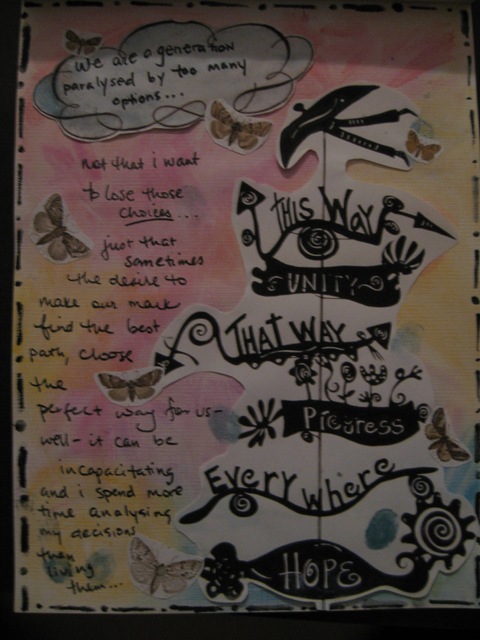 we are a generation
paralysed by too many
options...
not that i want
to lose those
choices...
just that
sometimes
the desire to
make our mark
find the best
path, choose
the
perfect way for us-
well- it can be
incapacitating
and i spend more
time analysing
my decisions
than
living
them...
THIS WAY
UNITY
THAT WAY
PROGRESS
EVERYWHERE
HOPE